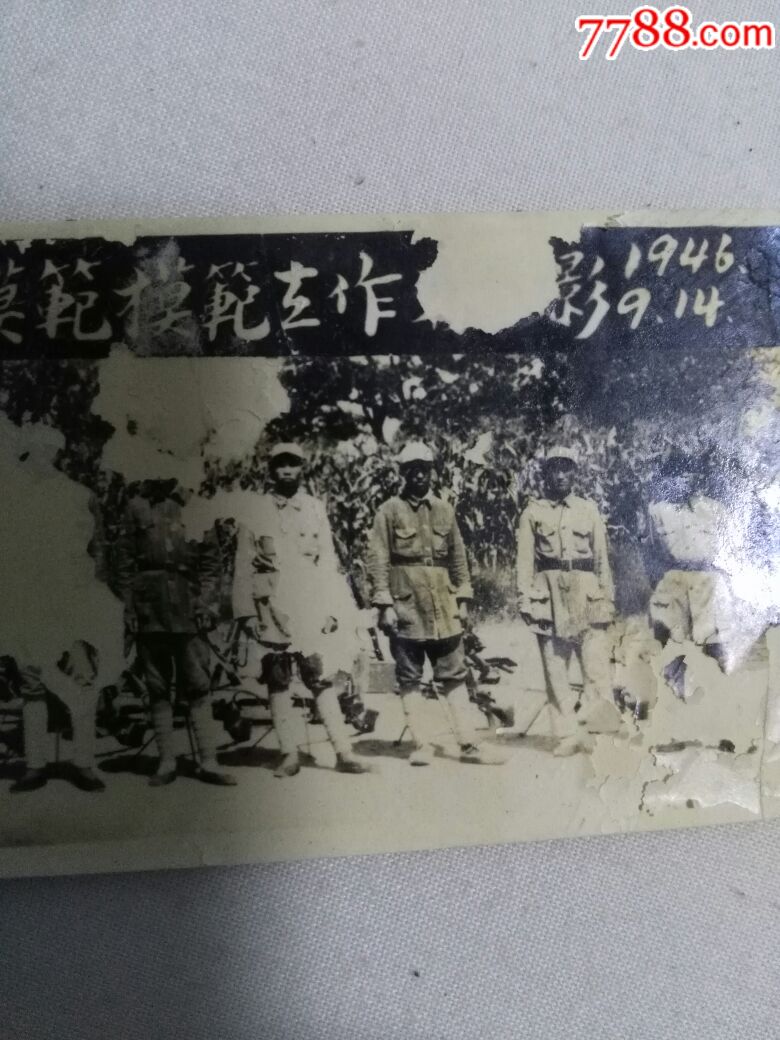 7788.com
模範模範工作 影 1946.
9.14.